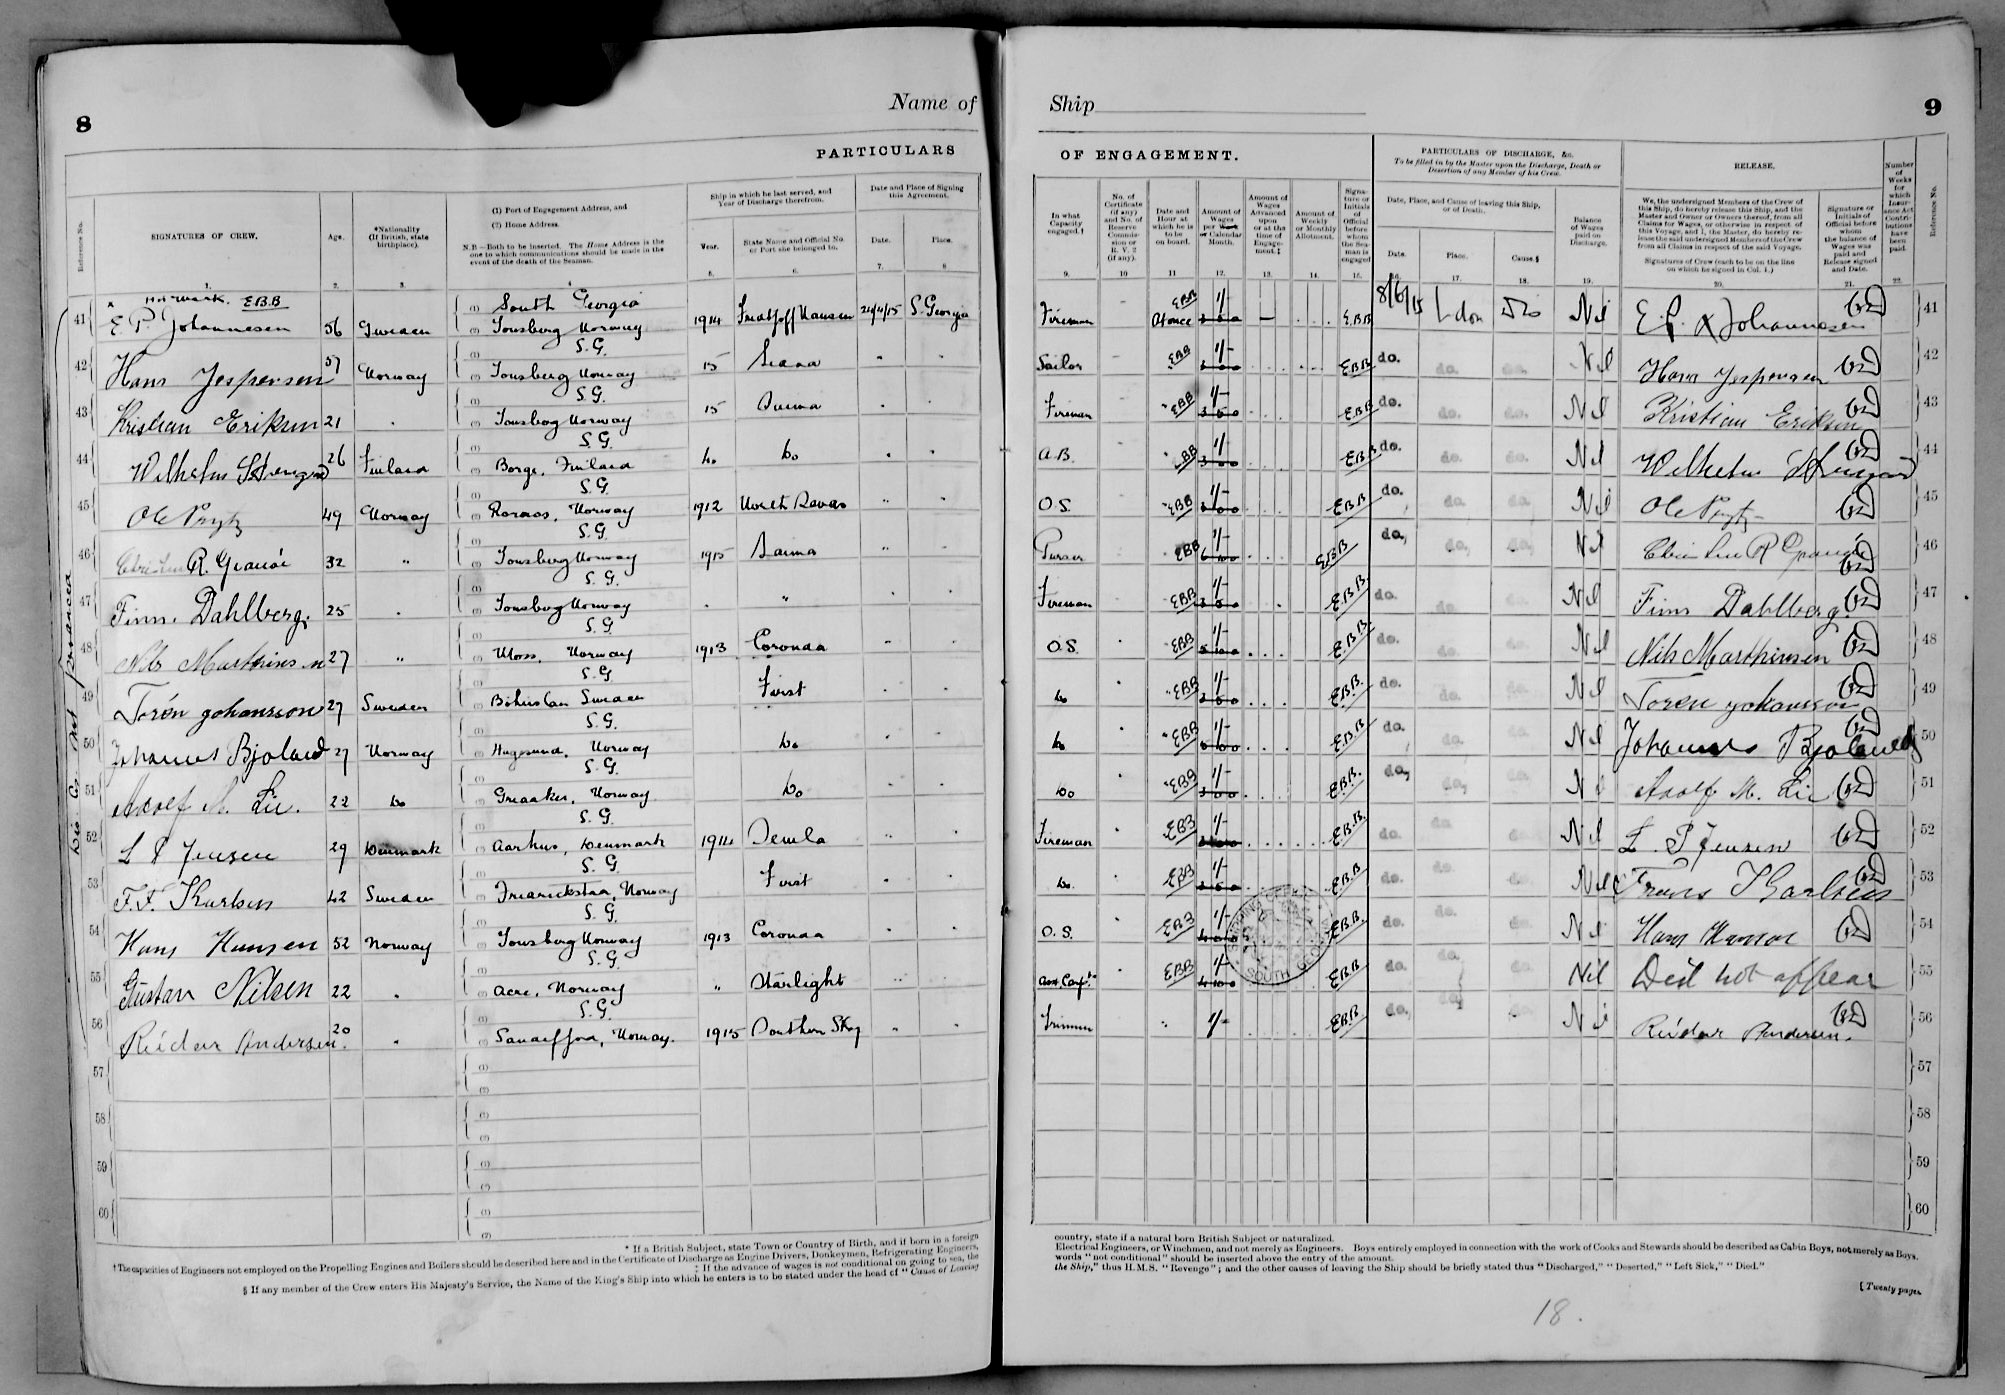 8
Name of
Ship
9
PARTICULARS
OF ENGAGEMENT.
PARTICULARS OF DISCHARGE, &c.
To be filled in by the Master upon the Discharge, Death or
Desertion of any Member of his Crew.
RELEASE.
Reference No.
SIGNATURES OF CREW.
Age.
*Nationality
(If British, state
birthplace).
(1) Port of Engagement Address, and
(2) Home Address.
N.B.—Both to be inserted. The Home Address is the
one to which communications should be made in the
event of the death of the Seaman.
Ship in which he last served, and
Year of Discharge therefrom.
Year.
State Name and Official No.
or Port she belonged to.
Date and Place of Signing
this Agreement.
Date.
Place.
In what
Capacity
engaged.†
No. of
Certificate
(if any)
and No. of
Reserve
Commission
or
R. V. 2
(if any).
Date and
Hour at
which he is
to be
on board.
Amount of
Wages
per Week
or Calendar
Month.
Amount of
Wages
Advanced
upon
or at the
time of
Engagement.‡
Amount of
Weekly
or Monthly
Allotment.
Signature or
Initials
of
Official
before
whom
the Seaman is
engaged
Date, Place, and Cause of leaving this Ship,
or of Death.
Date.
Place.
Cause.§
Balance
of Wages
paid on
Discharge.
We, the undersigned Members of the Crew of
this Ship, do hereby release this Ship, and the
Master and Owner or Owners thereof, from all
Claims for Wages, or otherwise in respect of
this Voyage, and I, the Master, do hereby release the said undersigned Members of the Crew
from all Claims in respect of the said Voyage.
Signatures of Crew (each to be on the line
on which he signed in Col. 1.)
Signature or
Initials of
Official before
whom
the balance of
Wages was
paid and
Release signed
and Date.
Number
of
Weeks
for
which
Insurance Act
Contributions
have
been
paid.
Reference No.
1. 2. 3. 4. 5. 6. 7. 8
9. 10 11 12. 13. 14. 15. 16. 17. 18. 19. 20. 21. 22.
x His mark. E.B.B
41 E. P. Johannesen 56 Sweden (1) South Georgia (2) Tonsberg Norway 1914 Fridtjoff Nansen 24/4/15 S. Georgia Fireman EBB At once 1/- E.B.B 8/6/15 Ldon Dis Nil E. P. x Johannesen 41
42 Hans Jespersen 57 Norway (1) S.G. (2) Tonsberg Norway 15 " " Sailor EBB 1/- EBB do. do. do. Nil Hans Jespersen 42
43 Kristian Eriksen 21 " (1) S.G. (2) Tonsberg Norway 15 " " Fireman EBB 1/- EBB do. do. do. Nil Kristian Eriksen 43
44 Wilhelm 26 Finland (1) S.G. (2) Borge, Finland Do Do " " A.B. EBB 1/- EBB do. do. do. Nil Wilhelm 44
45 Ole Prytz 49 Norway (1) S.G. (2) Roraas, Norway 1912 " " O.S. EBB 1/- EBB do. do. do. Nil Ole Prytz 45
46 R. 32 " (1) S.G. (2) Tonsberg Norway 1915 " " Purser EBB 1/- EBB do. do. do. Nil R 46
47 Finn. Dahlberg. 25 " (1) S.G. (2) Tonsberg Norway " " " " Fireman EBB 1/- E.B.B. do. do. do. Nil Finn Dahlberg. 47
48 Nils Marthinsen 27 " (1) S.G. (2) Moss, Norway 1913 Coronda " " O.S. EBB 1/- E.B.B. do. do. do. Nil Nils Marthinsen 48
49 Torén Johansson 27 Sweden (1) S.G. (2) Bohuslan Sweden First " " Do EBB 1/- E.B.B. do. do. do. Nil Torén Johansson 49
50 Johannes Bjoland 27 Norway (1) S.G. (2) Hugesund, Norway Do " " Do EBB 1/- E.B.B do. do. do. Nil Johannes Bjoland 50
51 Adolf M. Lie. 22 Do (1) S.G. (2) Greaaker, Norway Do Do EBB 1/- E.B.B. do. do. do. Nil Adolf M. Lie 51
52 L P Jensen 29 Denmark (1) S.G. (2) Aarhus, Denmark 1914 " " Fireman EBB 1/- E.B.B. do. do. do. Nil L. P Jensen 52
53 F. F. Karlsen 42 Sweden (1) S.G. (2) Fredrickstad, Norway First " " Do. EBB 1/- E.B.B do. do. do. Nil Frans F Karlsen 53
54 Hans Hansen 52 Norway (1) S.G. (2) Tonsberg Norway 1913 Coronda " " O.S. EBB 1/- E.B.B. do. do. do. Nil Hans Hansen 54
55 Gustav Nilsen 22 " (1) S.G. (2) Acre, Norway " Starlight " " Asst Carp. EBB 1/- EBB do. do. do. Nil Did not appear 55
56 Reidar Andersen. 20 " (1) S.G. (2) Sandefjord, Norway. 1915 Southern Sky " " Trimmer " 1/- EBB do. do. Nil Reidar Andersen. 56
57 57
58 58
59 59
60 60
SOUTH GEORGIA
* If a British Subject, state Town or Country of Birth, and if born in a foreign
country, state if a natural born British Subject or naturalized.
† The capacities of Engineers not employed on the Propelling Engines and Boilers should be described here and in the Certificate of Discharge as Engine Drivers, Donkeymen, Refrigerating Engineers,
Electrical Engineers, or Winchmen, and not merely as Engineers. Boys entirely employed in connection with the work of Cooks and Stewards should be described as Cabin Boys, not merely as Boys.
‡ If the advance of wages is not conditional on going to sea, the
words "not conditional" should be inserted above the entry of the amount.
§ If any member of the Crew enters His Majesty's Service, the Name of the King's Ship into which he enters is to be stated under the head of "Cause of Leaving
the Ship," thus H.M.S. "Revenge"; and the other causes of leaving the Ship should be briefly stated thus "Discharged," "Deserted," "Left Sick," "Died."
[Twenty pages.
18.